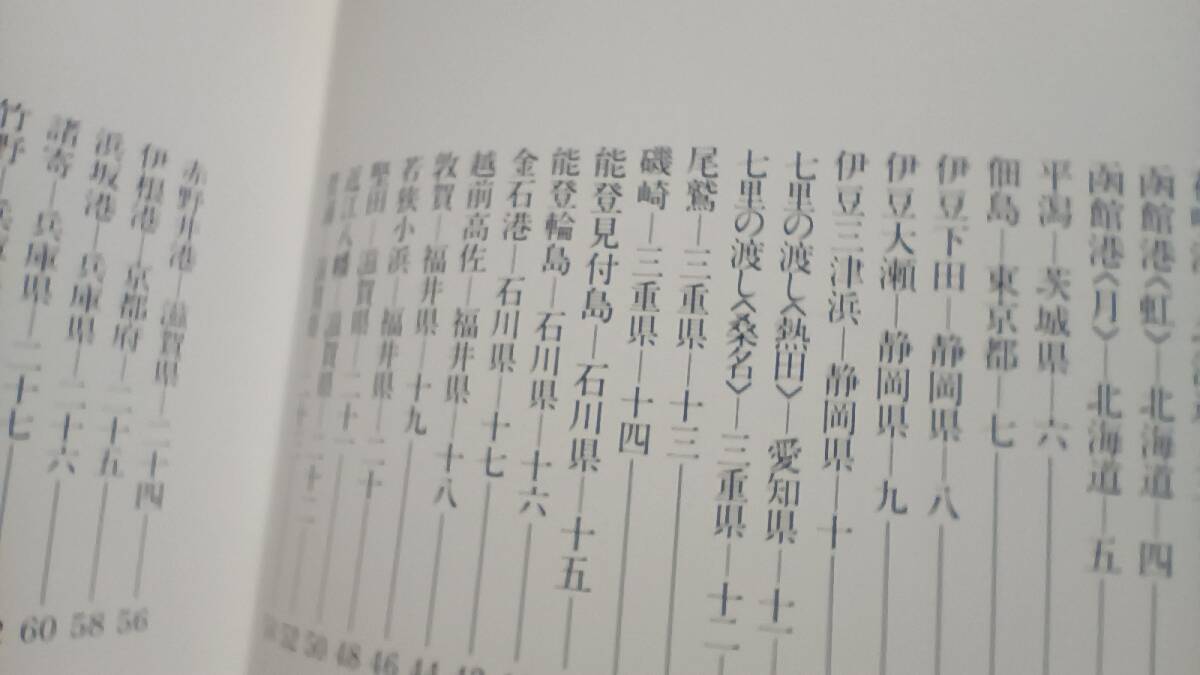 函館港〈虹〉―北海道―四
函館港〈月〉―北海道―五
平潟―茨城県―六
佃島―東京都―七
伊豆下田―静岡県―八
伊豆大瀬―静岡県―九
伊豆三津浜―静岡県―十
七里の渡し〈熱田〉―愛知県―十一
七里の渡し〈桑名〉―三重県―十二
尾鷲―三重県―十三
磯崎―三重県―十四
能登見付島―石川県―十五
能登輪島―石川県―十六
金石港―石川県―十七
越前高佐―福井県―十八
敦賀―福井県―十九 42
若狭小浜―福井県―二十 44
堅田―滋賀県―二十一 46
近江八幡―滋賀県 48
50
52
赤野井港―滋賀県―二十四 56
伊根港―京都府―二十五 58
浜坂港―兵庫県―二十六 60
諸寄―兵庫県―二十七
竹野―兵庫